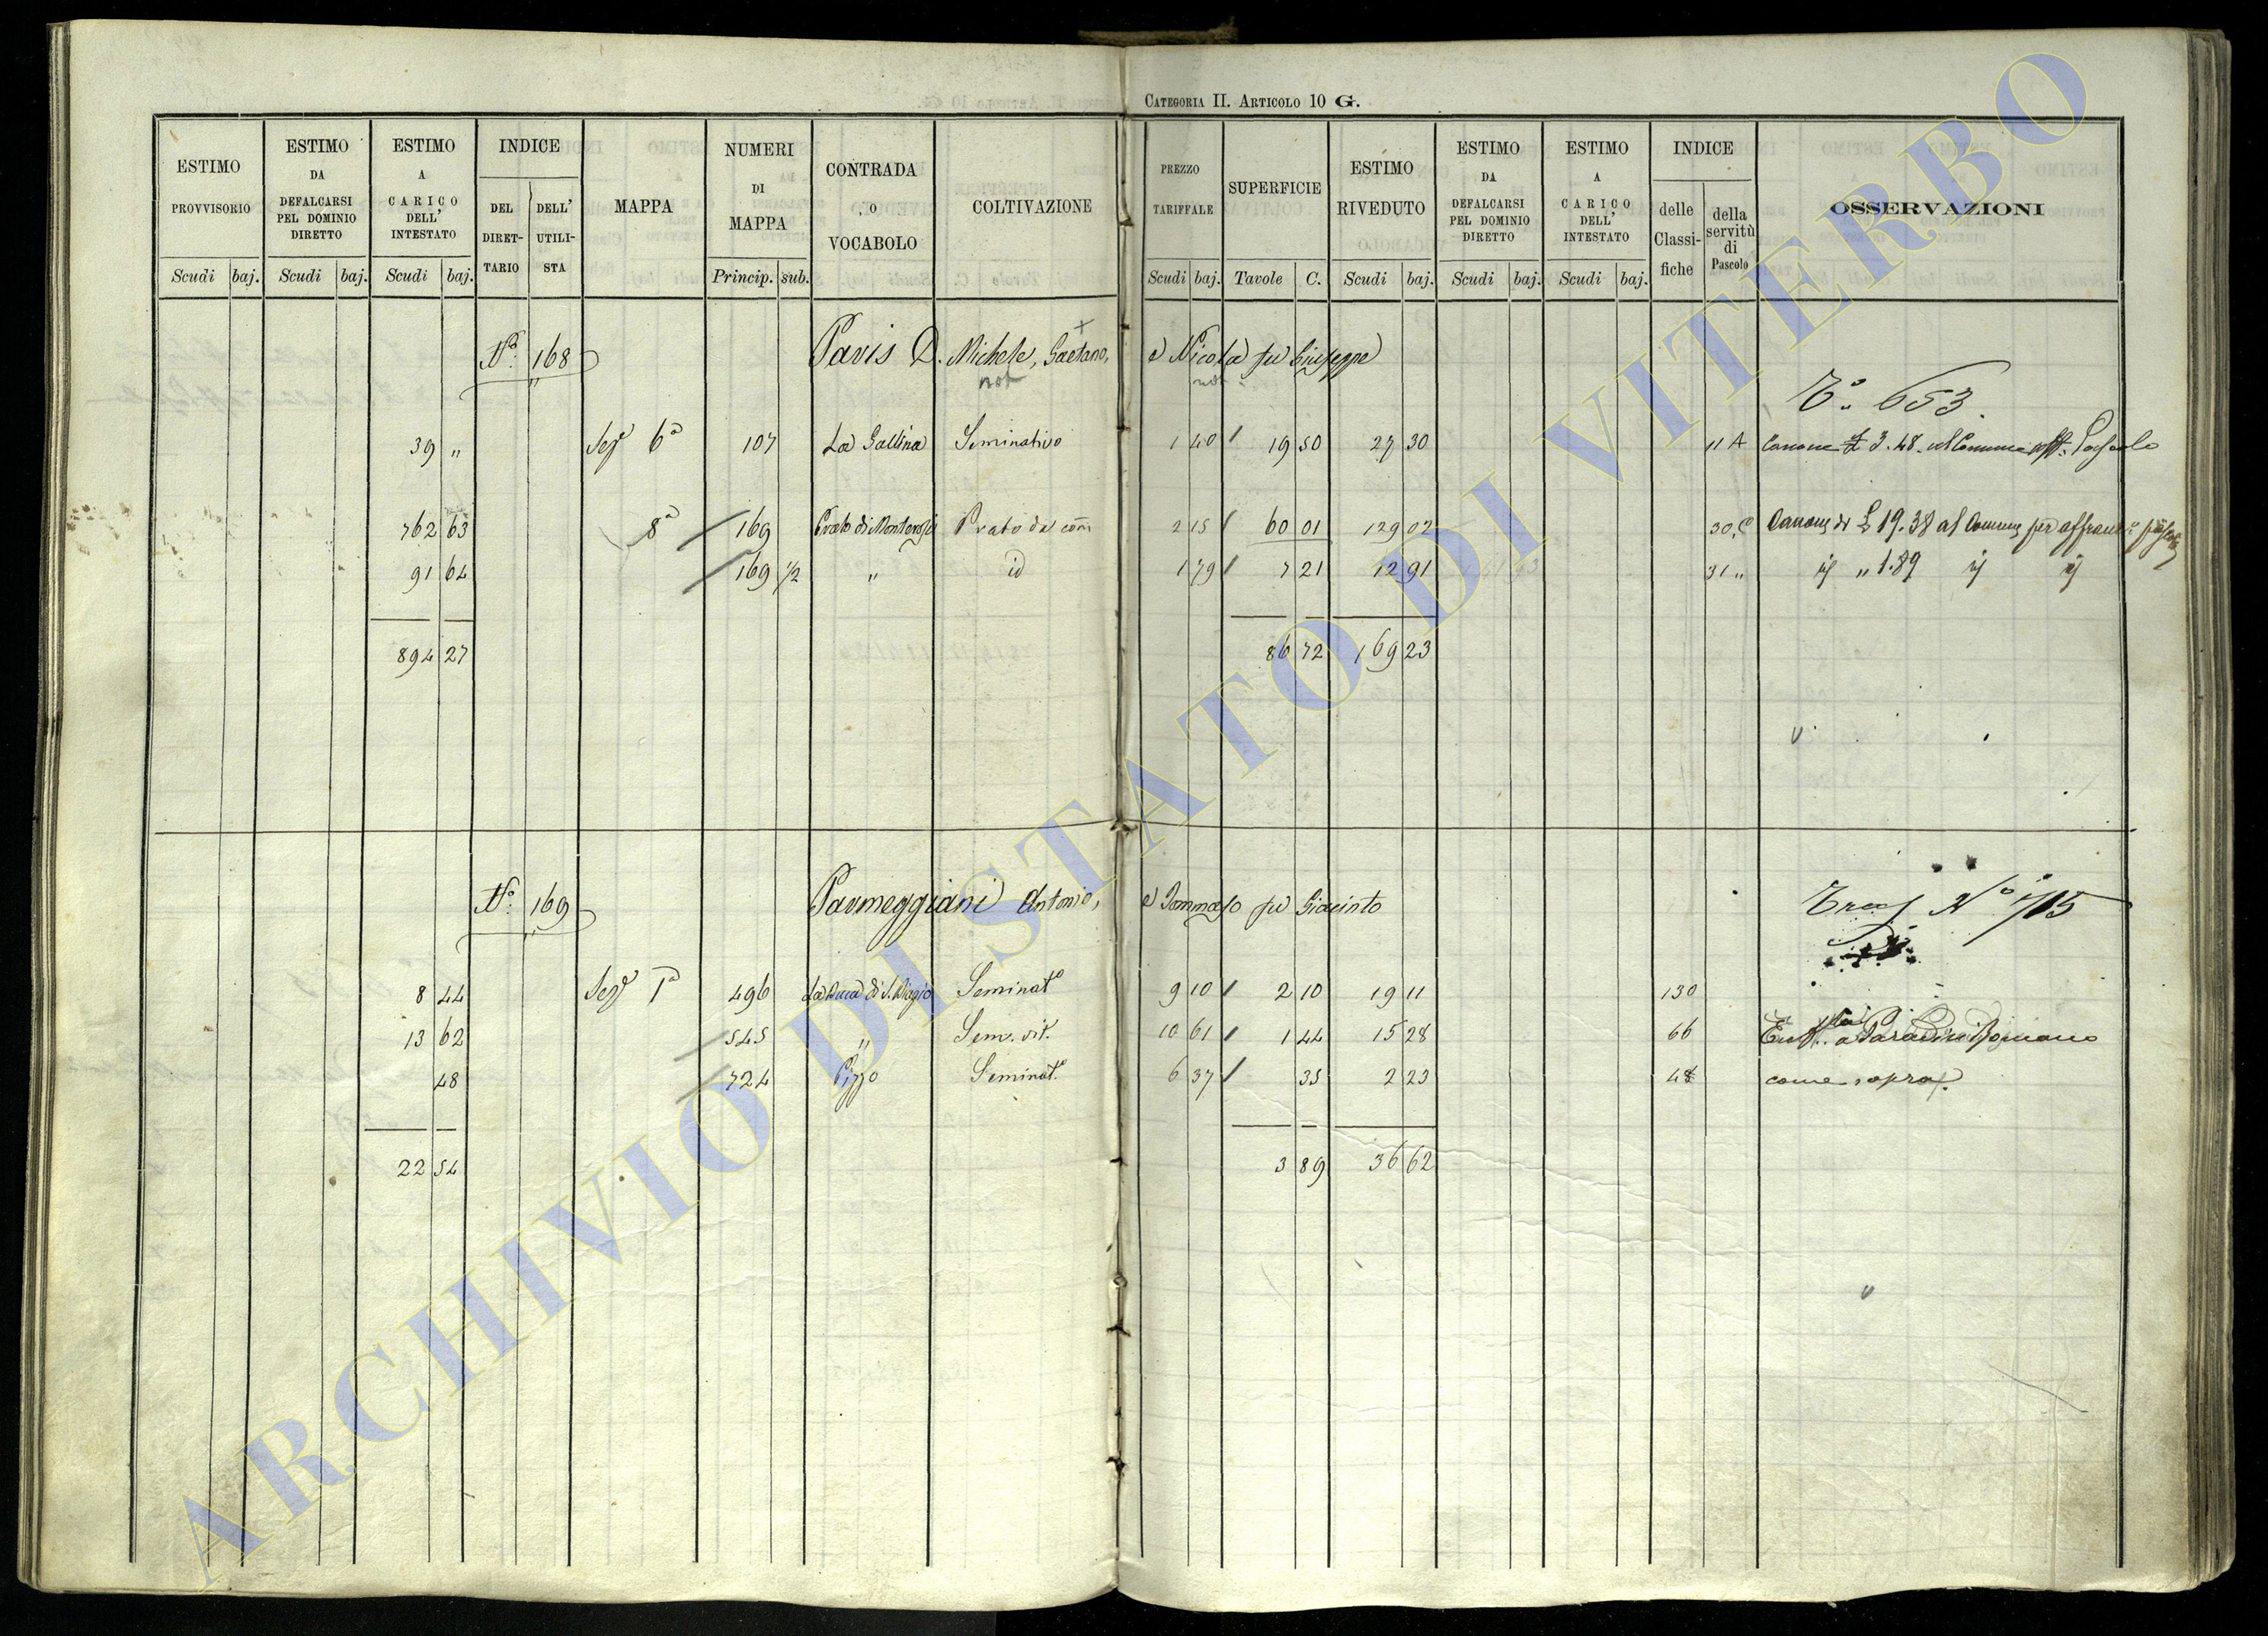 CATEGORIA II. ARTICOLO 10 G.
ESTIMO PROVVISORIO Scudi baj.
ESTIMO DA DEFALCARSI PEL DOMINIO DIRETTO Scudi baj.
ESTIMO A CARICO DELL' INTESTATO Scudi baj.
INDICE DEL DIRET-TARIO DELL' UTILI-STA
MAPPA
NUMERI DI MAPPA Princip. sub.
CONTRADA O VOCABOLO
COLTIVAZIONE
PREZZO TARIFFALE Scudi baj.
SUPERFICIE Tavole C.
ESTIMO RIVEDUTO Scudi baj.
ESTIMO DA DEFALCARSI PEL DOMINIO DIRETTO Scudi baj.
ESTIMO A CARICO DELL' INTESTATO Scudi baj.
INDICE delle Classi-fiche della servitù di Pascolo
OSSERVAZIONI
N.º 168 Paris D. Michele, Gaetano, e Nicola fu Giuseppe
not not
Tº 653
39 „ Sezª 6ª 107 La Gallina Seminativo 1 40 19 50 27 30 11 A Canone £ 3.48 al Comune aff. Pascolo
762 63 8ª 169 Prato di Prato da 2 15 60 01 129 02 30, C Canone di £ 19.38 al Comune per
91 64 169 1/2 „ id 1 79 7 21 12 91 31 „ id „ 1.89 id id
894 27 86 72 169 23
N.º 169 Parmeggiani Antonio, e Tommaso fu Giacinto
Tras Nº 1715
8 44 Sezª 1ª 496 La di S. Biagio Seminatº 9 10 2 10 19 11 130
13 62 545 „ Sem. vit. 10 61 1 44 15 28 66 Enft. a Paradisi Romano
48 724 Pizzo Seminatº 6 37 35 2 23 48 come sopra
22 54 3 89 36 62
ARCHIVIO DI STATO DI VITERBO